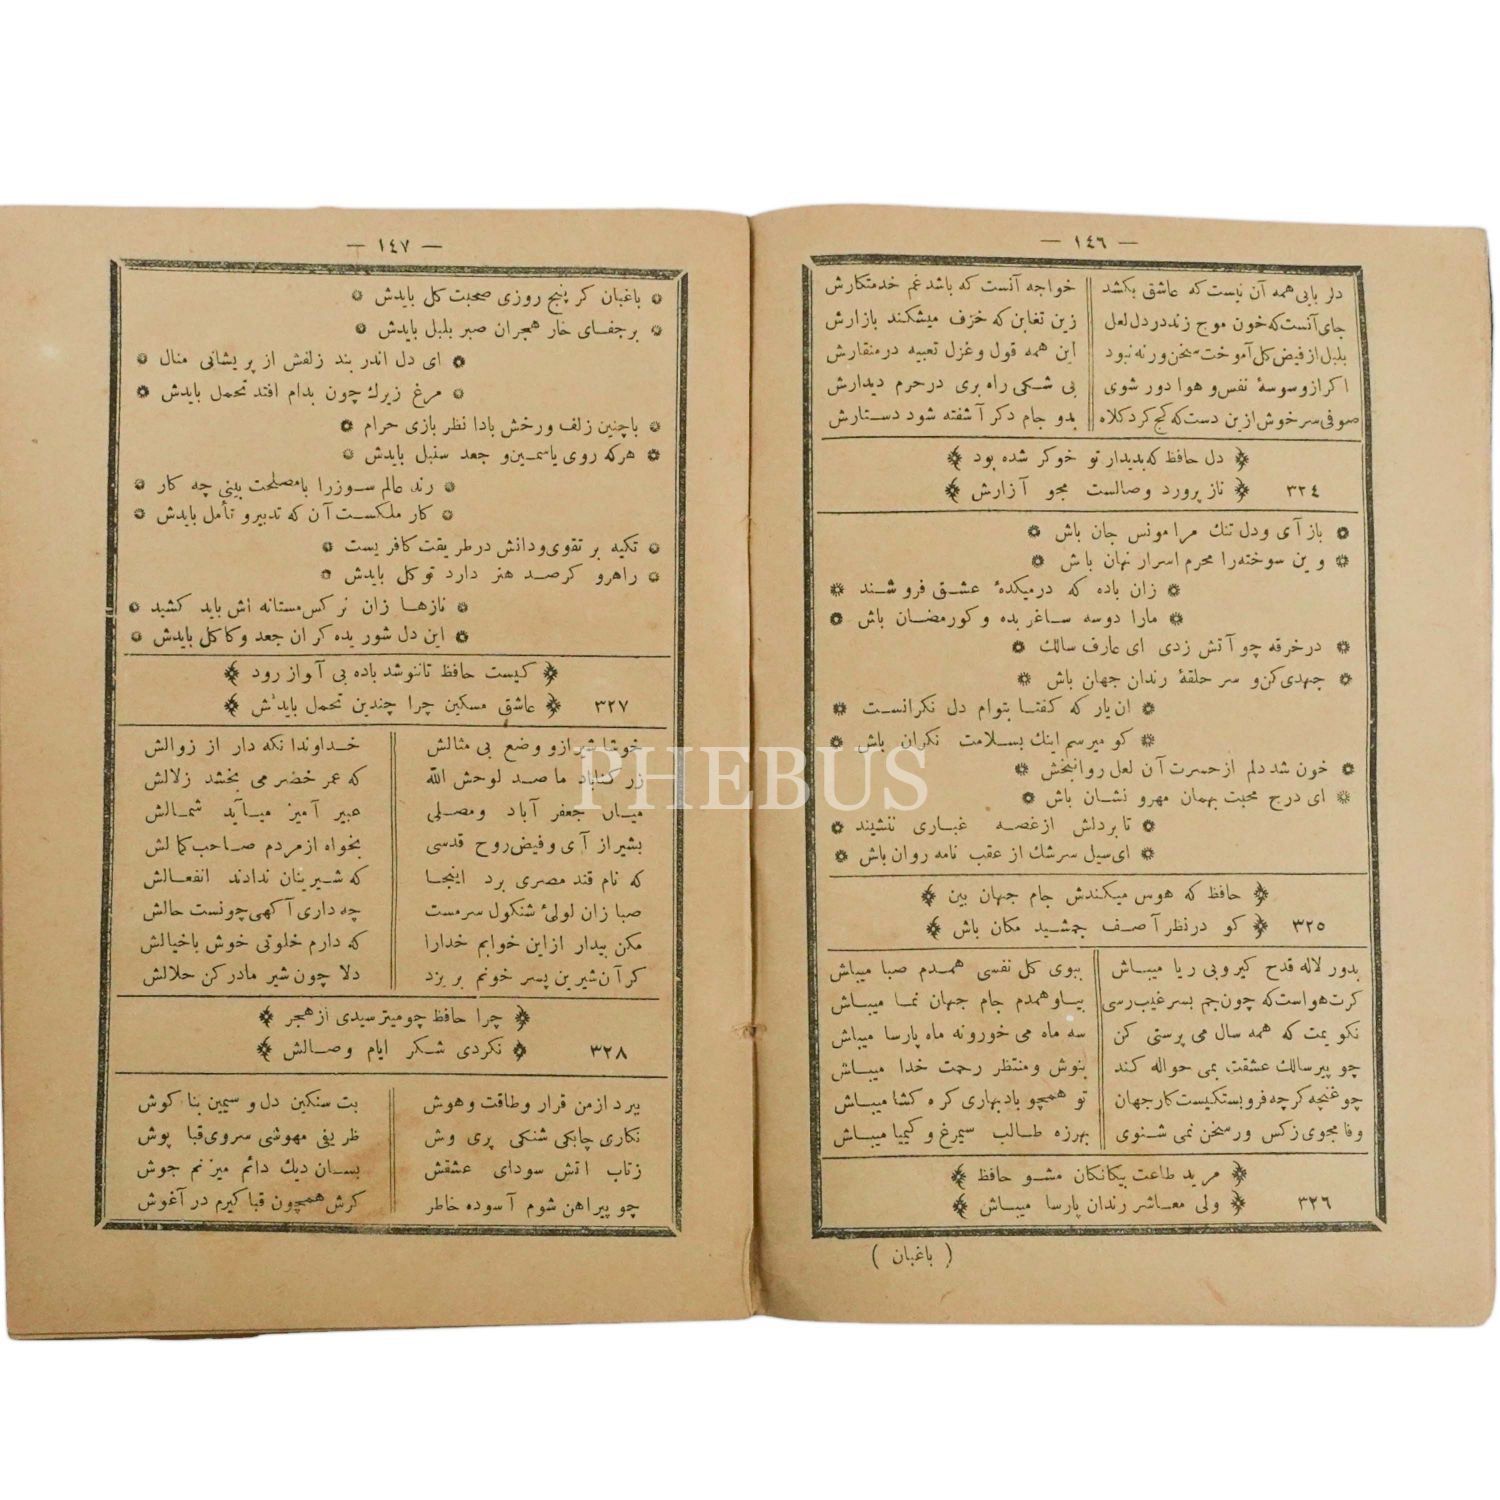 — ١٤٦ —
دلر بایی همه آن نیست که عاشق بکشد خواجه آنست که باشد غم خدمتکارش
جای آنست که خون موج زند در دل لعل زین تغابن که خزف میشکند بازارش
بلبل از فیض کل آموخت سخن ورنه نبود این همه قول وغزل تعبیه در منقارش
اکر از وسوسهٔ نفس و هوا دور شوی بی شکی راه بری در حرم دیدارش
صوفی سر خوش ازین دست که کج کرد کلاه بدو جام دکر آشفته شود دستارش
دل حافظ که بدیدار تو خوکر شده بود
٣٢٤ ناز پرورد وصالست مجو آزارش
باز آی ودل تنك مرا مونس جان باش
وین سوخته را محرم اسرار نهان باش
زان باده که درمیکدهٔ عشق فروشند
مارا دوسه ساغر بده و کو رمضان باش
در خرقه چو آتش زدی ای عارف سالك
جهدی کن و سر حلقهٔ رندان جهان باش
ان یار که کفتا بتوام دل نکرانست
کو میرسم اینك بسلامت نکران باش
خون شد دلم از حسرت آن لعل روانبخش
ای درج محبت بهمان مهرو نشان باش
تا بردلش از غصه غباری ننشیند
ای سیل سرشك از عقب نامه روان باش
حافظ که هوس میکندش جام جهان بین
٣٢٥ کو در نظر آصف جمشید مکان باش
بدور لاله قدح کیر وبی ریا میباش ببوی کل نفسی همدم صبا میباش
کرت هواست که چون جم بسر غیب رسی بیاو همدم جام جهان نما میباش
نکو یمت که همه سال می پرستی کن سه ماه می خورونه ماه پارسا میباش
چو پیر سالك عشقت بمی حواله کند بنوش ومنتظر رحمت خدا میباش
چو غنچه کرچه فرو بستکیست کار جهان تو همچو باد بهاری کره کشا میباش
وفا مجوی زکس ور سخن نمی شنوی بهرزه طالب سیمرغ و کیمیا میباش
مرید طاعت بیکانکان مشو حافظ
٣٢٦ ولی معاشر رندان پارسا میباش
( باغبان )
— ١٤٧ —
باغبان کر پنج روزی صحبت کل بایدش
برجفای خار هجران صبر بلبل بایدش
ای دل اندر بند زلفش از پریشانی منال
مرغ زیرك چون بدام افتد تحمل بایدش
باچنین زلف ورخش بادا نظر بازی حرام
هرکه روی یاسمین و جعد سنبل بایدش
رند عالم سوزرا بامصلحت بینی چه کار
کار ملکست آن که تدبیرو تأمل بایدش
تکیه بر تقوی ودانش در طریقت کافریست
راهرو کرصد هنر دارد توکل بایدش
نازها زان نرکس مستانه اش باید کشید
این دل شوریده کر ان جعد وکاکل بایدش
کیست حافظ تاننوشد باده بی آواز رود
٣٢٧ عاشق مسکین چرا چندین تحمل بایدش
خوشا شیراز و وضع بی مثالش خداوندا نکه دار از زوالش
زر کناباد ما صد لوحش الله که عمر خضر می بخشد زلالش
میان جعفر آباد ومصلی عبیر آمیز میآید شمالش
بشیراز آی وفیض روح قدسی بخواه ازمردم صاحب کمالش
که نام قند مصری برد اینجا که شیرینان ندادند انفعالش
صبا زان لولیٔ شنکول سرمست چه داری آکهی چونست حالش
مکن بیدار ازاین خوابم خدارا که دارم خلوتی خوش باخیالش
کر آن شیرین پسر خونم بریزد دلا چون شیر مادر کن حلالش
چرا حافظ چو میترسیدی از هجر
٣٢٨ نکردی شکر ایام وصالش
ببرد ازمن قرار وطاقت وهوش بت سنکین دل و سیمین بنا کوش
نکاری چابکی شنکی پری وش ظریفی مهوشی سروی قبا پوش
زتاب اتش سودای عشقش بسان دیك دائم میزنم جوش
چو پیراهن شوم آسوده خاطر کرش همچون قبا کیرم در آغوش
PHEBUS